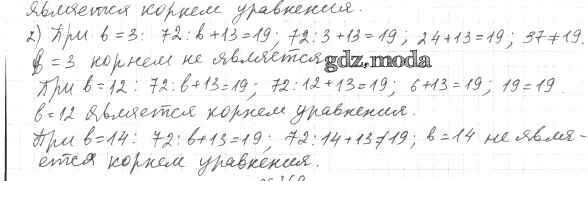 является корнем уравнения.
2) При b=3: 72:b+13=19; 72:3+13=19; 24+13=19; 37≠19.
b=3 корнем не является gdz.moda
При b=12: 72:b+13=19; 72:12+13=19; 6+13=19; 19=19.
b=12 является корнем уравнения.
При b=14: 72:b+13=19; 72:14+13≠19; b=14 не явля-
ется корнем уравнения.